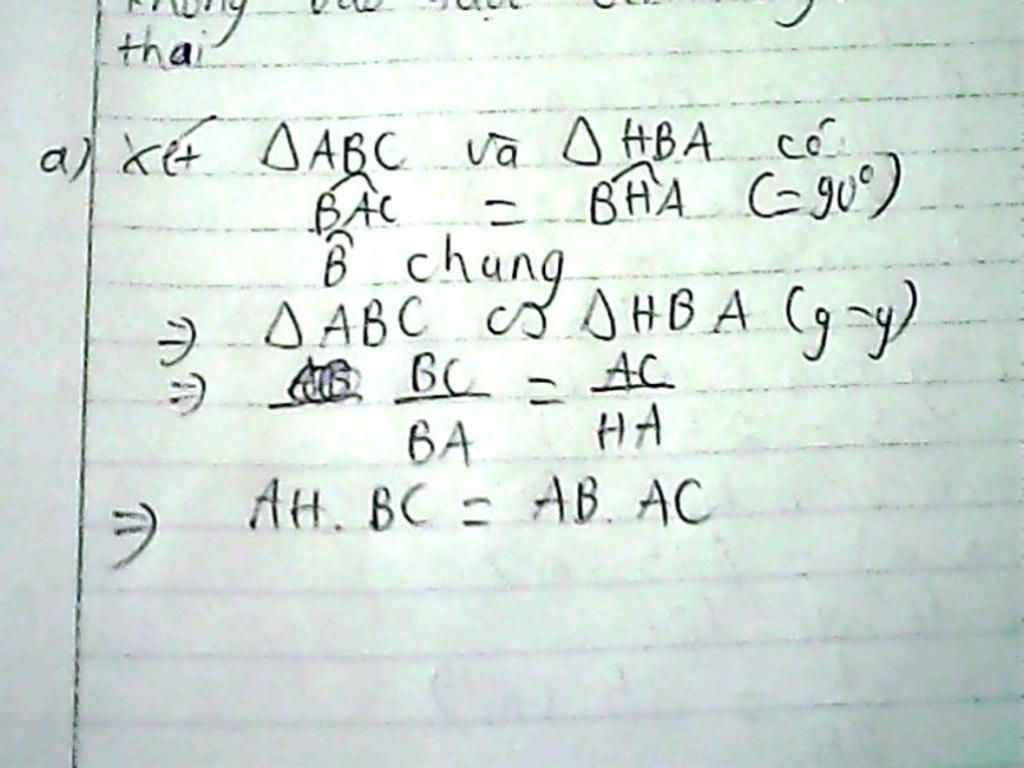 thai
a) Xét ΔABC và ΔHBA có:
BAC = BHA (=90°)
B chung
=> ΔABC ∽ ΔHBA (g-g)
=> BC/BA = AC/HA
=> AH. BC = AB. AC